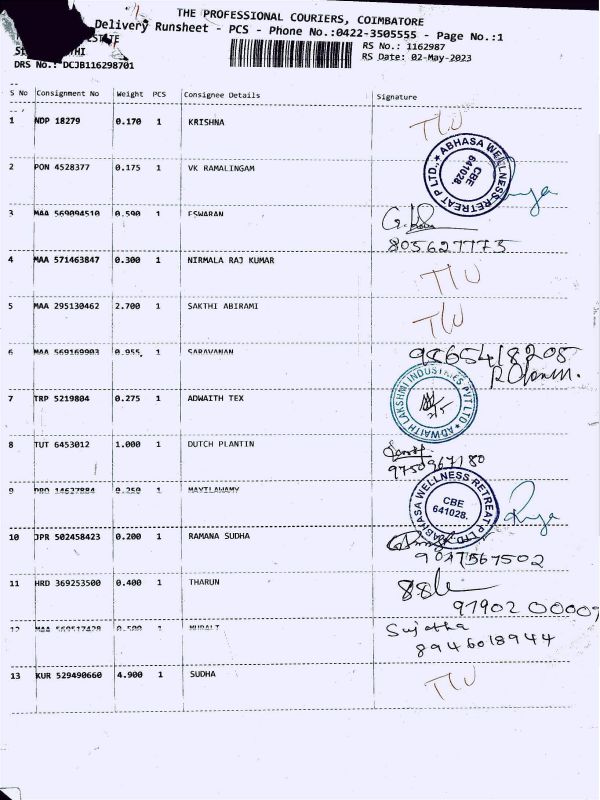 THE PROFESSIONAL COURIERS, COIMBATORE
Delivery Runsheet - PCS - Phone No.:0422-3505555 - Page No.:1
RS No.: 1162987
RS Date: 02-May-2023
DRS No.: DCJB116298701
S No Consignment No Weight PCS Consignee Details Signature
1 NDP 18279 0.170 1 KRISHNA
TLU
2 PON 4528377 0.175 1 VK RAMALINGAM
ABHASA WELLNESS RETREAT P LTD., CBE 641028.
3 MAA 569094510 0.590 1 ESWARAN
805627773
4 MAA 571463847 0.300 1 NIRMALA RAJ KUMAR
TLU
5 MAA 295130462 2.700 1 SAKTHI ABIRAMI
TLU
6 MAA 569169903 0.955 1 SARAVANAN
9865418205
7 TRP 5219804 0.275 1 ADWAITH TEX
ADWAITH LAKSHMI INDUSTRIES PVT LTD
8 TUT 6453012 1.000 1 DUTCH PLANTIN
9750967180
9 PRO 14627884 0.250 1 MAYILAWAMY
ABHASA WELLNESS RETREAT P LTD., CBE 641028.
10 JPR 502458423 0.200 1 RAMANA SUDHA
9047567502
11 HRD 369253500 0.400 1 THARUN
97902 00007
12 MAA 569517428 0.500 1 MURALI
Sujatha
8946018944
13 KUR 529490660 4.900 1 SUDHA
TLU